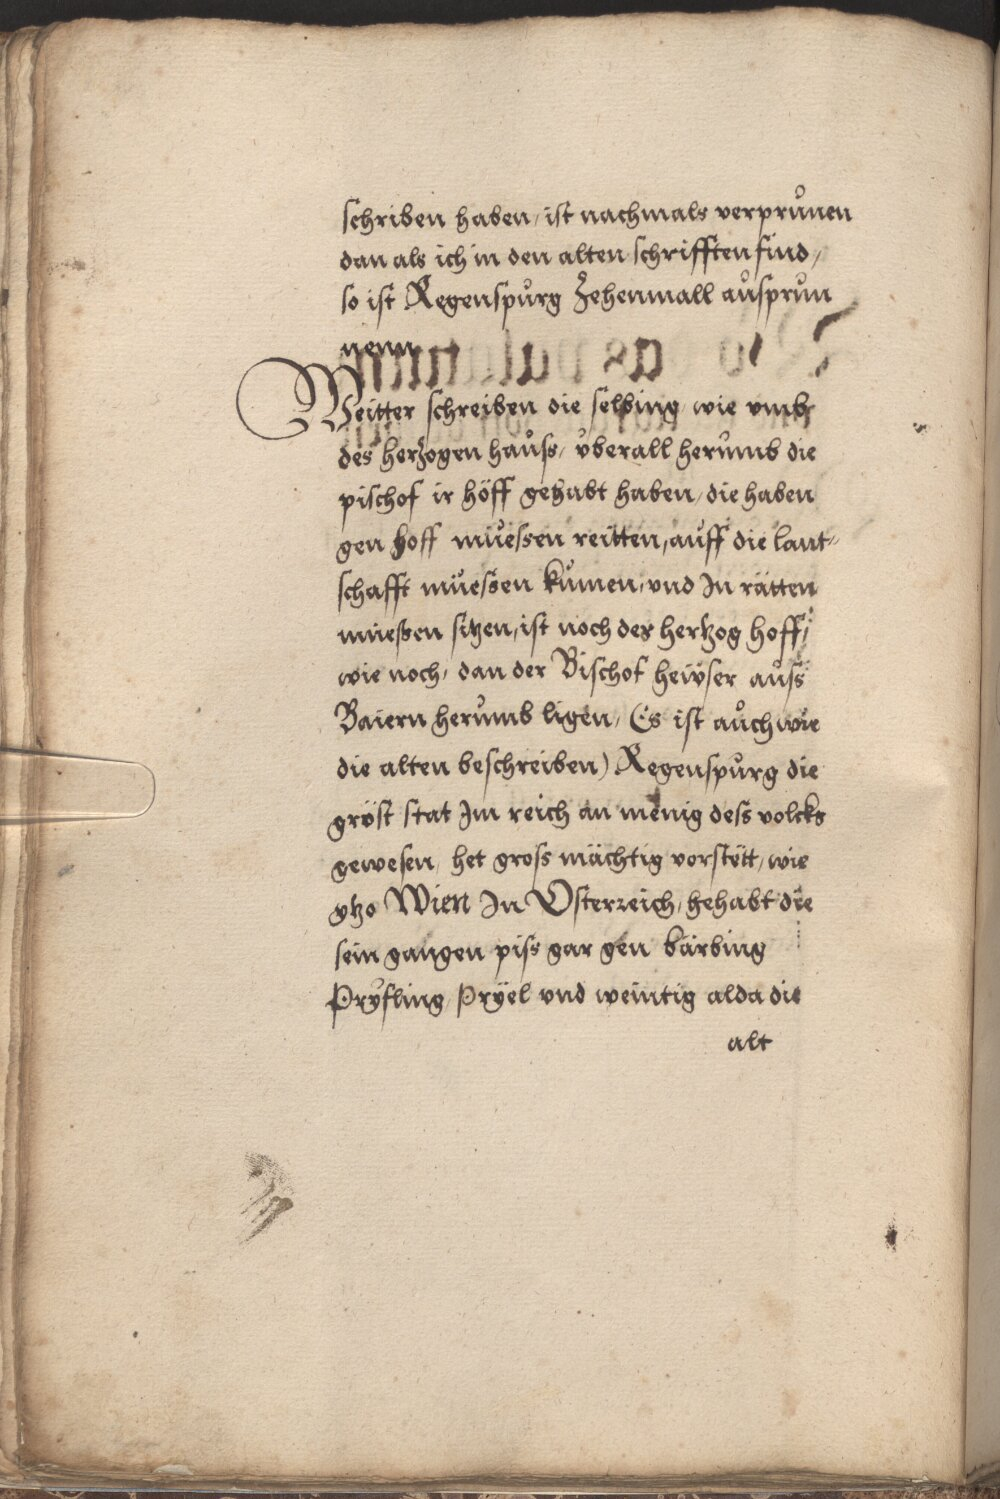 schriben haben, ist nachmals verprůnen
dan als ich in den alten schrifften find,
so ist Regenspůrg Zehenmall aůsprůn
nenn
Weitter schreiben die selbing, wie vmb
des herzogen haůss, vberall herůmb die
pischof ir höff gehabt haben, die haben
gen hoff müessen reitten, auff die lant-
schafft müessen kůmen, vnd In rätten
müessen sitzen, ist noch der hertzog hoff,
wie noch, dan der Bischof heüser aůss
Baiern herůmb ligen, Es ist aůch wie
die alten beschreiben) Regenspůrg die
gröst stat Im reich an menig dess volcks
gewesen, het gross mächtig vorstett, wie
ytzo Wien In Osterreich, gehabt die
sein gangen piss gar gen bärbing
Pryfling, Pryel vnd weintig alda die
alt